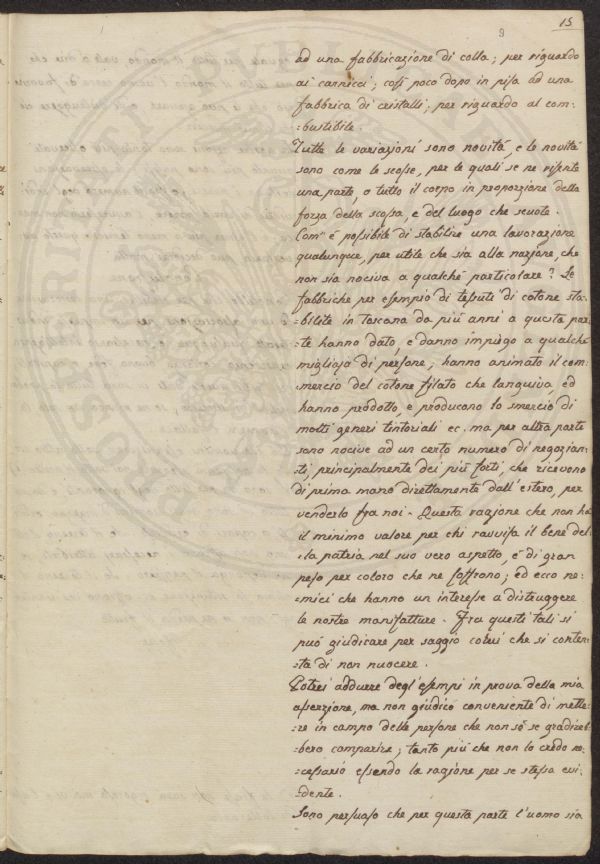 15
9
ad una fabbricazione di colla; per riguardo
ai cannicci; così poco dopo in pisa ad una
fabbrica di cristalli; per riguardo al com-
=bustibile.
Tutte le variazioni sono novità, e le novità
sono come le scosse, per le quali se ne risente
una parte, o tutto il corpo in proporzione della
forza della scossa, e del luogo che scuote.
Com'è possibile di stabilire una lavorazione
qualunque, per utile che sia alla nazione, che
non sia nociva a qualche particolare? Le
fabbriche per esempio di tessuti di cotone sta-
=bilite in Toscana da più anni a questa par-
te hanno dato, e danno impiego a qualche
migliajo di persone; hanno animato il com-
mercio del cotone filato che languiva, ed
hanno prodotto, e producono lo smercio di
molti generi tintoriali ec. ma per altra parte
sono nocive ad un certo numero di negozian-
=ti, principalmente dei più forti, che ricevono
di prima mano direttamente dall'estero, per
venderlo fra noi. Questa ragione che non ha
il minimo valore per chi ravvisa il bene del-
=la patria nel suo vero aspetto, è di gran
peso per coloro che ne soffrono; ed ecco ne-
=mici che hanno un interesse a distruggere
le nostre manifatture. Fra questi tali si
può giudicare per saggio colui che si conten-
=ta di non nuocere.
Potrei addurre degl'esempi in prova della mia
asserzione, ma non giudico conveniente di mette-
=re in campo delle persone che non sò se gradireb-
bero comparire; tanto più che non lo credo ne-
=cessario essendo la ragione per se stessa evi-
=dente.
Sono persuaso che per questa parte l'uomo sia